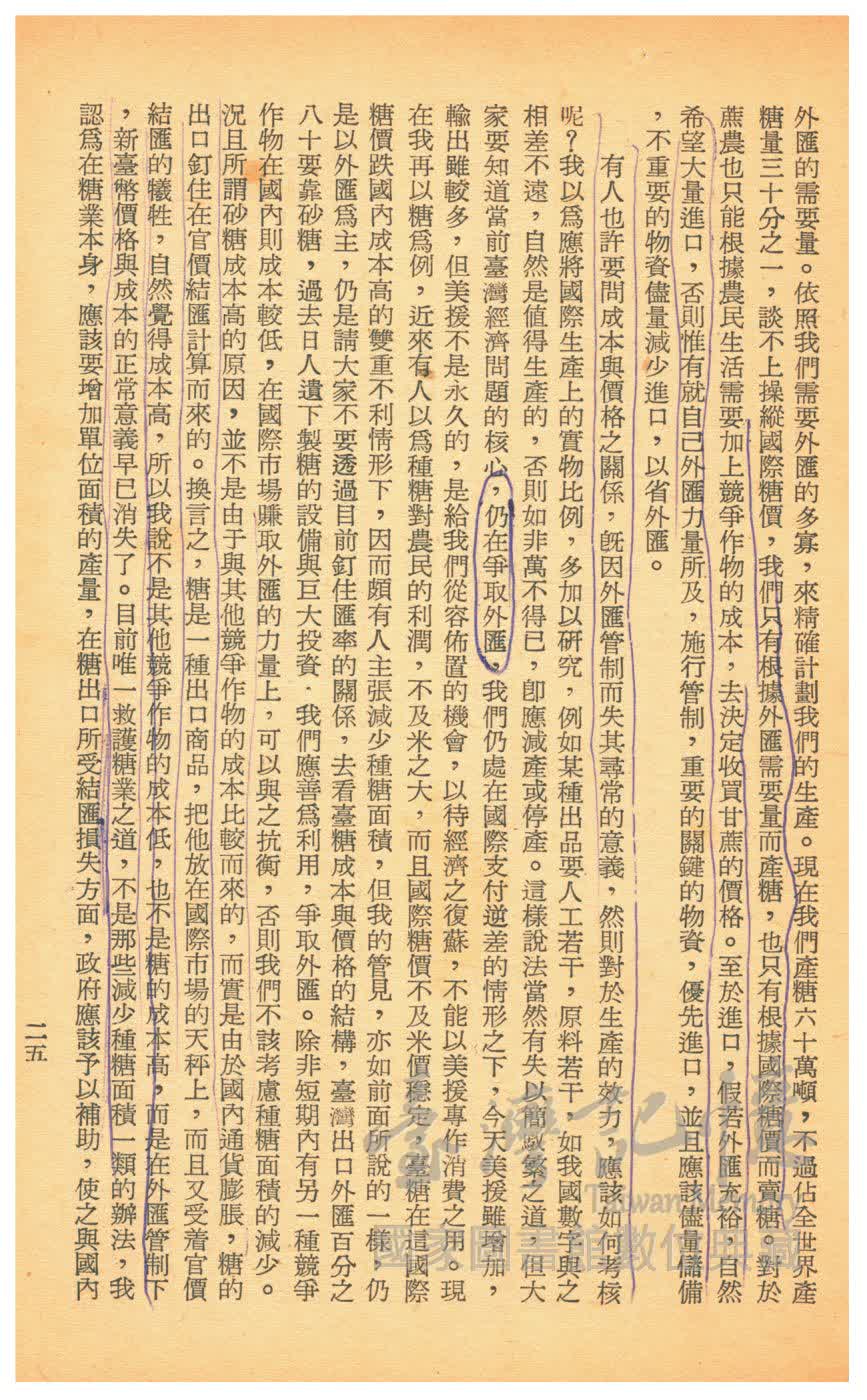 外匯的需要量。依照我們需要外匯的多寡，來精確計劃我們的生產。現在我們產糖六十萬噸，不過佔全世界產
糖量三十分之一，談不上操縱國際糖價，我們只有根據外匯需要量而產糖，也只有根據國際糖價而賣糖。對於
蔗農也只能根據農民生活需要加上競爭作物的成本，去決定收買甘蔗的價格。至於進口，假若外匯充裕，自然
希望大量進口，否則惟有就自己外匯力量所及，施行管制，重要的關鍵的物資，優先進口，並且應該儘量儲備
，不重要的物資儘量減少進口，以省外匯。
有人也許要問成本與價格之關係，旣因外匯管制而失其尋常的意義，然則對於生產的效力，應該如何考核
呢？我以爲應將國際生產上的實物比例，多加以研究，例如某種出品要人工若干，原料若干，如我國數字與之
相差不遠，自然是值得生產的，否則如非萬不得已，卽應減產或停產。這樣說法當然有失以簡馭繁之道，但大
家要知道當前臺灣經濟問題的核心，仍在爭取外匯，我們仍處在國際支付逆差的情形之下，今天美援雖增加，
輸出雖較多，但美援不是永久的，是給我們從容佈置的機會，以待經濟之復蘇，不能以美援專作消費之用。現
在我再以糖爲例，近來有人以爲種糖對農民的利潤，不及米之大，而且國際糖價不及米價穩定，臺糖在這國際
糖價跌國內成本高的雙重不利情形下，因而頗有人主張減少種糖面積，但我的管見，亦如前面所說的一樣，仍
是以外匯爲主，仍是請大家不要透過目前釘住匯率的關係，去看臺糖成本與價格的結構，臺灣出口外匯百分之
八十要靠砂糖，過去日人遺下製糖的設備與巨大投資．我們應善爲利用，爭取外匯。除非短期內有另一種競爭
作物在國內則成本較低，在國際市場賺取外匯的力量上，可以與之抗衡，否則我們不該考慮種糖面積的減少。
況且所謂砂糖成本高的原因，並不是由于與其他競爭作物的成本比較而來的，而實是由於國內通貨膨脹，糖的
出口釘住在官價結匯計算而來的。換言之，糖是一種出口商品，把他放在國際市場的天秤上，而且又受着官價
結匯的犧牲，自然覺得成本高，所以我說不是其他競爭作物的成本低，也不是糖的成本高，而是在外匯管制下
，新臺幣價格與成本的正常意義早已消失了。目前唯一救護糖業之道，不是那些減少種糖面積一類的辦法，我
認爲在糖業本身，應該要增加單位面積的產量，在糖出口所受結匯損失方面，政府應該予以補助，使之與國內
二五
臺灣記憶
Taiwan Memory
國家圖書館數位典藏